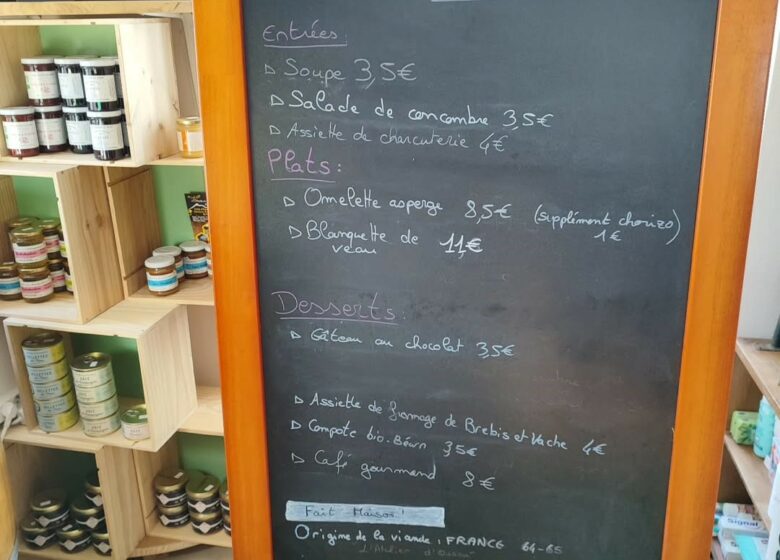 Entrées
Soupe 3,5€
Salade de concombre 3,5€
Assiette de charcuterie 4€
Plats:
Omelette asperge 8,5€ (supplément chorizo)
1€
Blanquette de 11€
veau
Desserts:
Gâteau au chocolat 3,5€
Assiette de fromage de Brebis et Vache 4€
Compote bio.Béarn 3,5€
Café gourmand 8€
Fait Maison!
Origine de la viande: FRANCE 64-65
L'Atelier
Signal